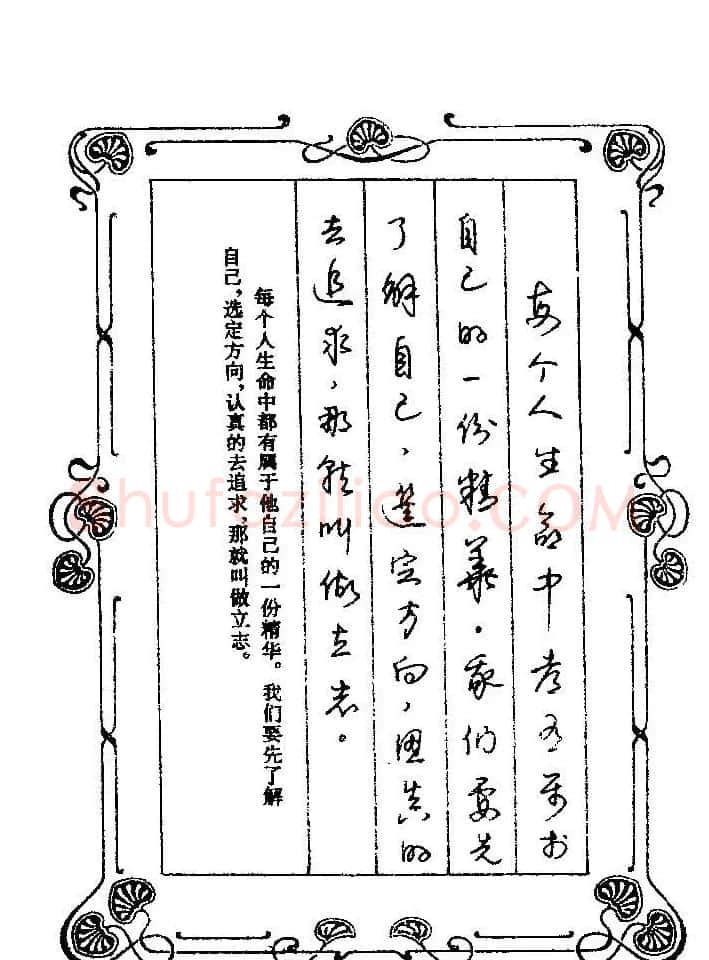 每个人生命中都有属于
自己的一份精華。我们要先
了解自己，選定方向，認真的
去追求，那就叫做立志。
每个人生命中都有属于他自己的一份精华。我们要先了解
自己，选定方向，认真的去追求，那就叫做立志。
shufaziliao.COM